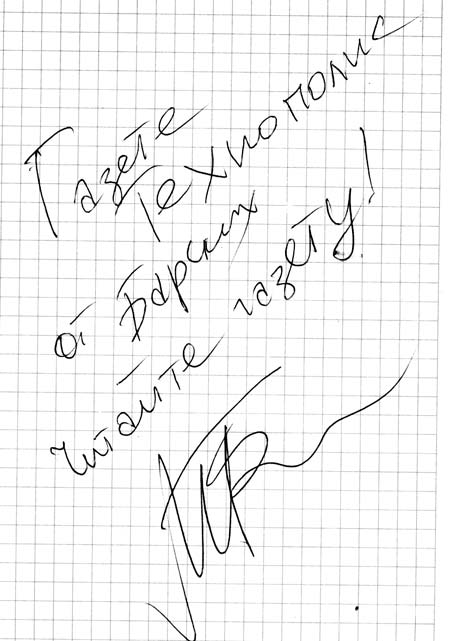 Газете
Технополис
от Барских
читайте газету!